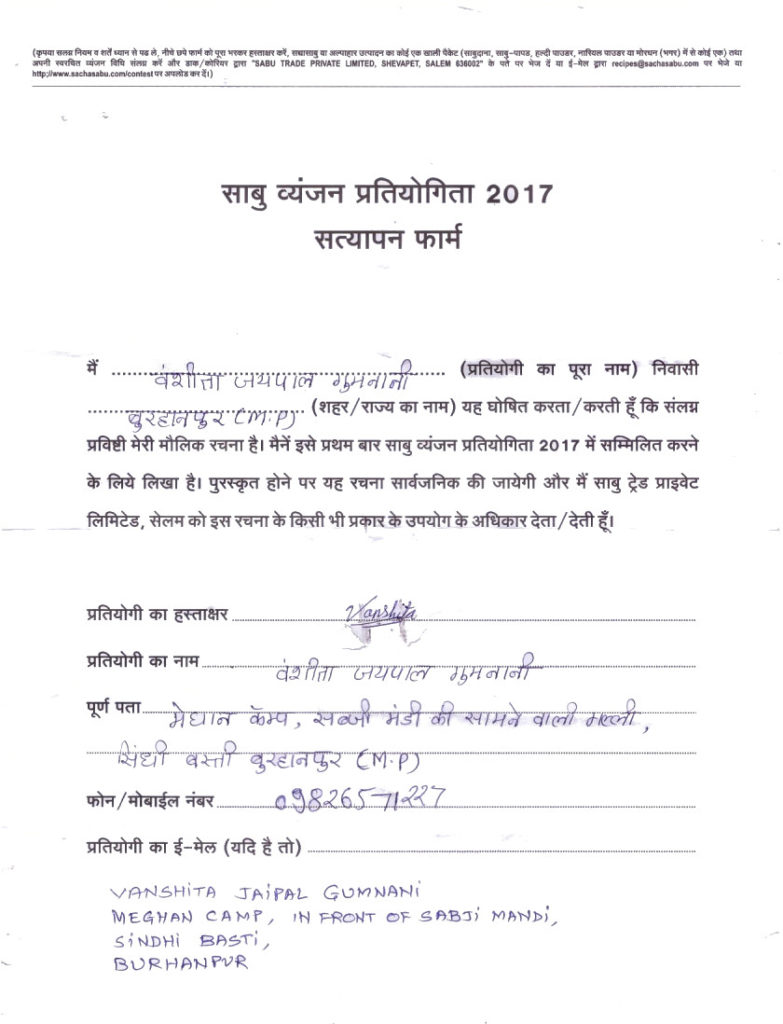 (कृपया सलग्न नियम व शर्ते ध्यान से पढ ले, नीचे छपे फार्म को पूरा भरकर हस्ताक्षर करें, सच्चासाबु या अल्पाहार उत्पादन का कोई एक खाली पैकेट (साबुदाना, साबु-पापड, हल्दी पाउडर, नारियल पाउडर या मोरधन (भगर) में से कोई एक) तथा
अपनी स्वरचित व्यंजन विधि संलग्न करें और डाक/कोरियर द्वारा "SABU TRADE PRIVATE LIMITED, SHEVAPET, SALEM 636002" के पते पर भेज दें या ई-मेल द्वारा recipes@sachasabu.com पर भेजे या
http://www.sachasabu.com/contest पर अपलोड कर दें।)
साबु व्यंजन प्रतियोगिता 2017
सत्यापन फार्म
मैं वंशीता जयपाल गुमनानी (प्रतियोगी का पूरा नाम) निवासी
बुरहानपुर (M.P) (शहर/राज्य का नाम) यह घोषित करता/करती हूँ कि संलग्न
प्रविष्टी मेरी मौलिक रचना है। मैनें इसे प्रथम बार साबु व्यंजन प्रतियोगिता 2017 में सम्मिलित करने
के लिये लिखा है। पुरस्कृत होने पर यह रचना सार्वजनिक की जायेगी और मैं साबु ट्रेड प्राइवेट
लिमिटेड, सेलम को इस रचना के किसी भी प्रकार के उपयोग के अधिकार देता/देती हूँ।
प्रतियोगी का हस्ताक्षर Vanshita
प्रतियोगी का नाम वंशीता जयपाल गुमनानी
पूर्ण पता मेघान कॅम्प, सब्जी मंडी की सामने वाली गल्ली,
सिंधी बस्ती बुरहानपुर (M.P)
फोन/मोबाईल नंबर 09826571227
प्रतियोगी का ई-मेल (यदि है तो)
VANSHITA JAIPAL GUMNANI
MEGHAN CAMP, IN FRONT OF SABJI MANDI,
SINDHI BASTI,
BURHANPUR